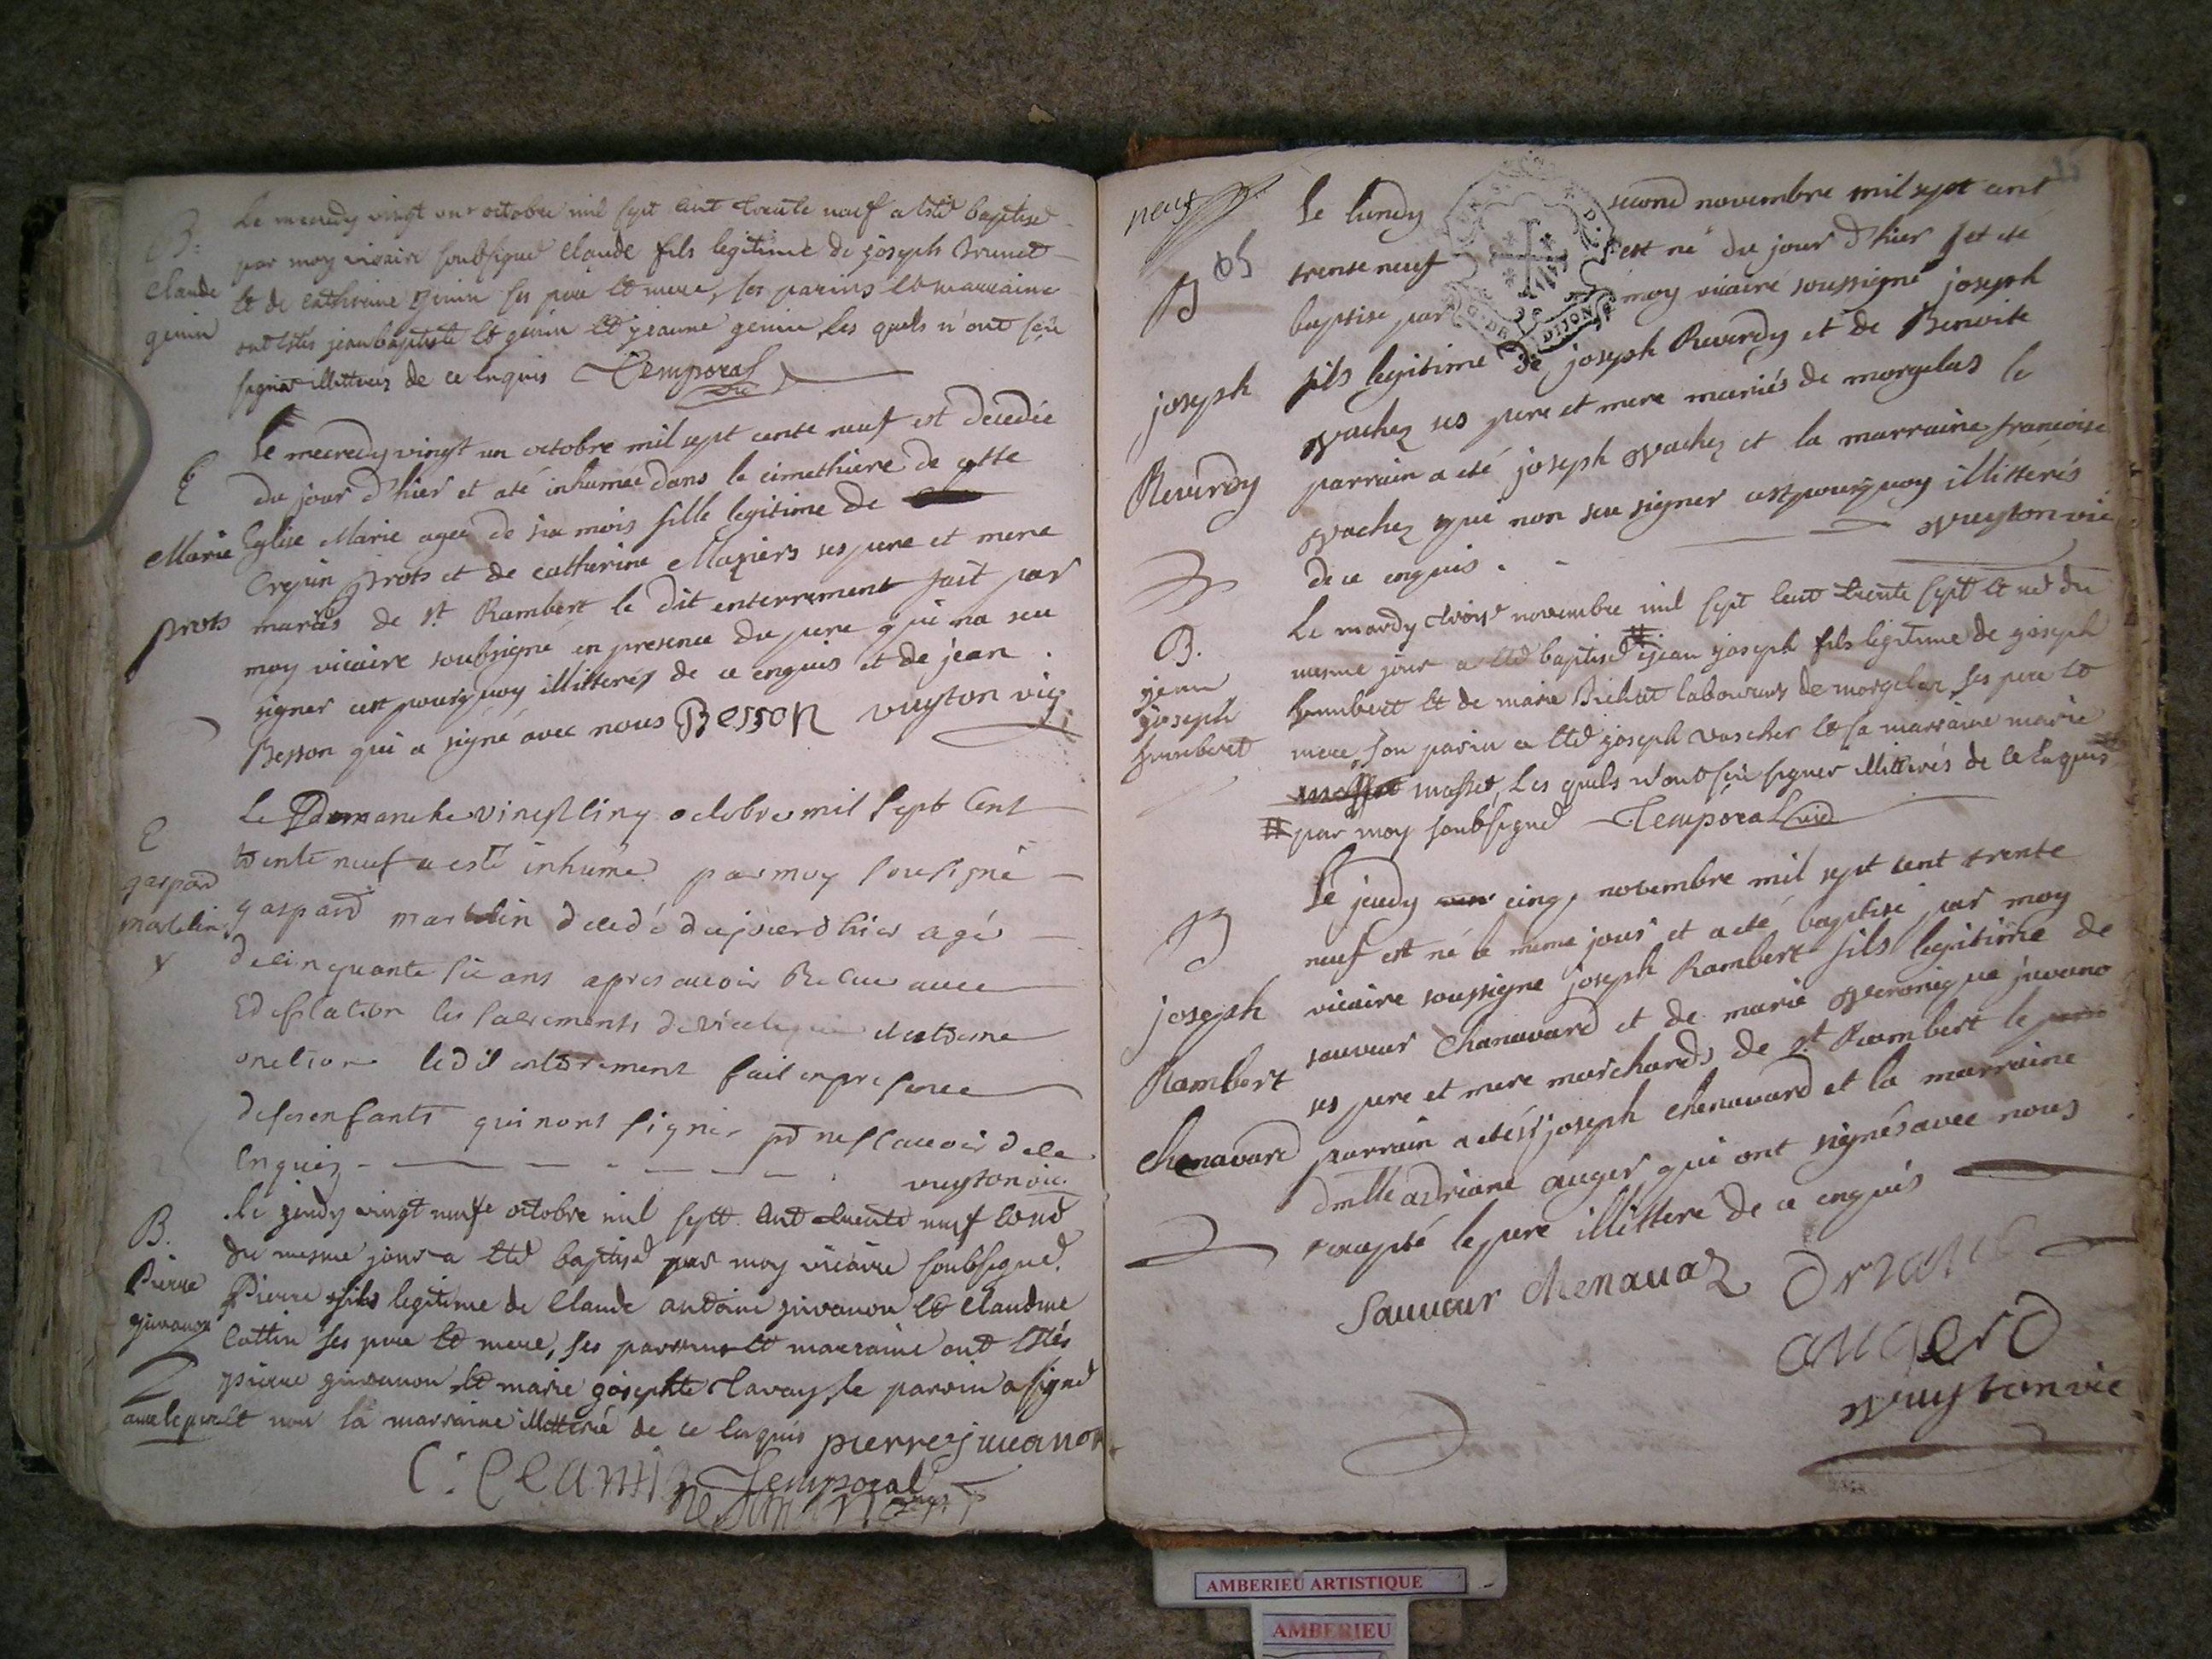 B.
Claude
genin
Le mecredy vingt un octobre mil sept cent trente neuf a esté baptisé
par moy vicaire soubsigné Claude fils legitime de joseph Brunet
et de Catherine genin ses pere et mere, ses parins et marraine
ont estés jean baptiste et genin et jeanne genin les quels n'ont sçu
signer illitterés de ce enquis Temporal vic
E
Marie
prots
Le mecredy vingt un octobre mil sept cente neuf est decedée
du jour d'hier et a été inhumée dans le cimethiere de cette
Eglise Marie agée de six mois fille legitime de
Crepin prots et de catherine Maziers ses pere et mere
mariés de st Rambert le dit enterrement fait par
moy vicaire soubsigné en presence du pere qui na seu
signer cest pourquoy illitterés de ce enquis et de jean
Besson qui a signé avec nous Besson vuyton vic
E
gaspard
martelin
Le Dimanche vingt cinq octobre mil sept Cent
trente neuf a esté inhumé par moy sousigné
gaspard martelin decedé du jourd hier agé
de cinquante six ans apres avoir Reçue avec
Edification les sacrements de viatique et extreme
onction le dit enterrement fait en presence
de ses enfants qui nont signer pr ne scavoir de ce
Enquis vuyton vic.
B.
Pierre
juvanon
Le jeudy vingt neufe octobre mil sept cent trente neuf et né
du mesme jour a été baptisé par moy vicaire soubsigné
Pierre fils legitime de Claude antoine juvanon et Claudine
Cottin ses pere et mere, ses parrains et marraine ont estés
pierre juvanon et marie josephte Tavoys, le parrin a signé
avec le pere et non la marraine illitteré de ce enquis pierre juvanon
Temporal
neuf
B 65
joseph
Reverdy
Le lundy second novembre mil sept cent
trente neuf est né du jour d'hier et eté
baptisé par moy vicaire soussigné joseph
fils legitime de joseph Reverdy et de Benoite
vachez ses pere et mere mariés de morgelas le
parrain a eté joseph vachez et la marraine francoise
vachez qui non seu signer cest pourquoy illitterés
de ce enquis. vuyton vic
G. DE DIJON
B.
jean
joseph
humbert
Le mardy trois novembre mil sept cent trente sept et né du
mesme jour a eté baptisé # jean joseph fils legitime de joseph
humbert et de marie Bichat laboureurs de morgelas, ses pere et
mere, son parin a eté joseph vascher et sa marraine marie
masset, les quels n'ont sçu signer illitterés de ce enquis
# par moy soubsigné Temporal vic
B
joseph
Rambert
Chenavard
Le jeudy cinq, novembre mil sept cent trente
neuf est né le meme jour et a eté baptisé par moy
vicaire soussigné joseph Rambert fils legitime de
sauveur Chanavard et de marie veronique juvano
ses pere et mere marchards de st Rambert le
parrain a eté sr joseph chenavard et la marraine
dmlle adriane auger qui ont signés avec nous
excepté le pere illitteré de ce enquis
Sauveur Chenavaz
augerd
vuyton vic
AMBERIEU ARTISTIQUE
AMBERIEU